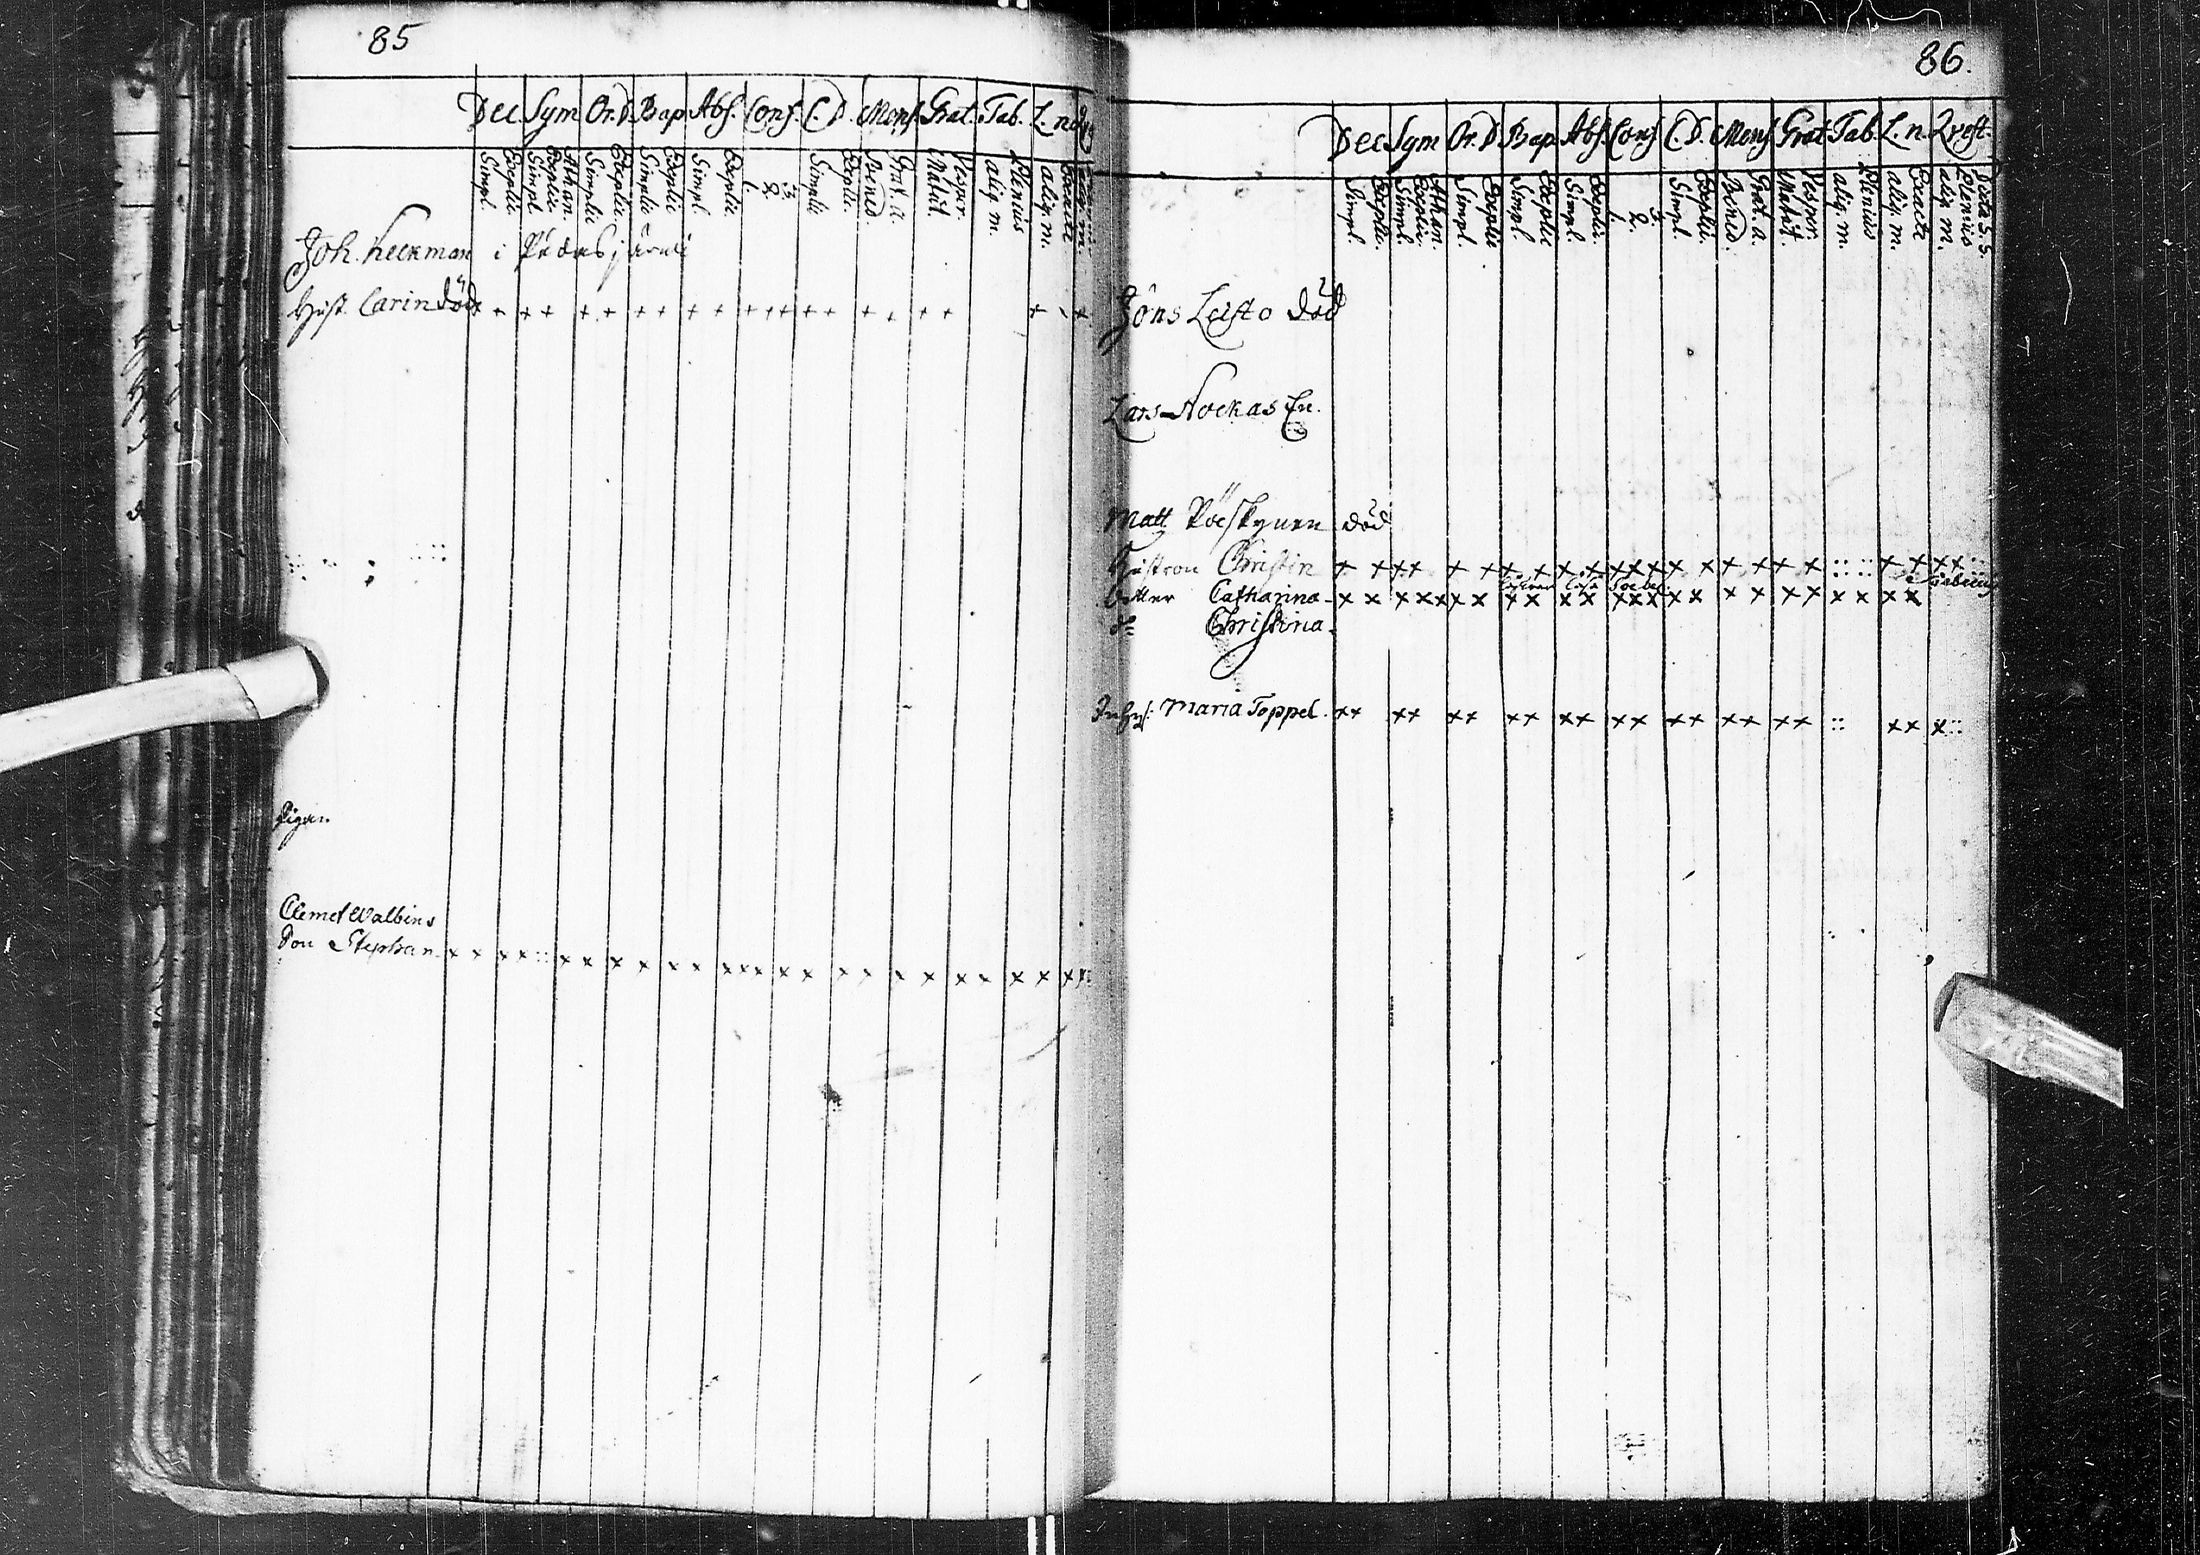 85
Dec Sym Or.D. Bap Abs. Conf. C.D. Mens. Grat. Tab. L.n
Simpl. Explic. Simpl. Explic. Athan. Simplic Explic. Simplic Explic Simpl. Explic 1. 2. 3. Simplic Explic. Bened. Grat. a. Matut. Vespr. aliq. m. Plenius aliq. m. Exacte
Joh. Keckman i
Hust. Carin död
Pigan
Clemet Walbins
Son Stephan
86.
Dec Sym Or.D. Bap Abs. Conf C.D. Mens. Grat Tab. L.n. Qvest.
Simpl. Explic. Simpl. Explic. Athan. Simpl. Explic Simpl. Explic Simpl. Explic. 1. 2. 3. Simpl. Explic. Bened. Grat. a. Matut. Vespr. aliq. m. Plenius aliq. m. Exacte aliq. m. Plenius Dicta S.S.
Jöns Leisto död
Lars Nockas En.
Matz död
Hustron Christin
Dotter Catharina
do Christina
Inhys: Maria Toppel.